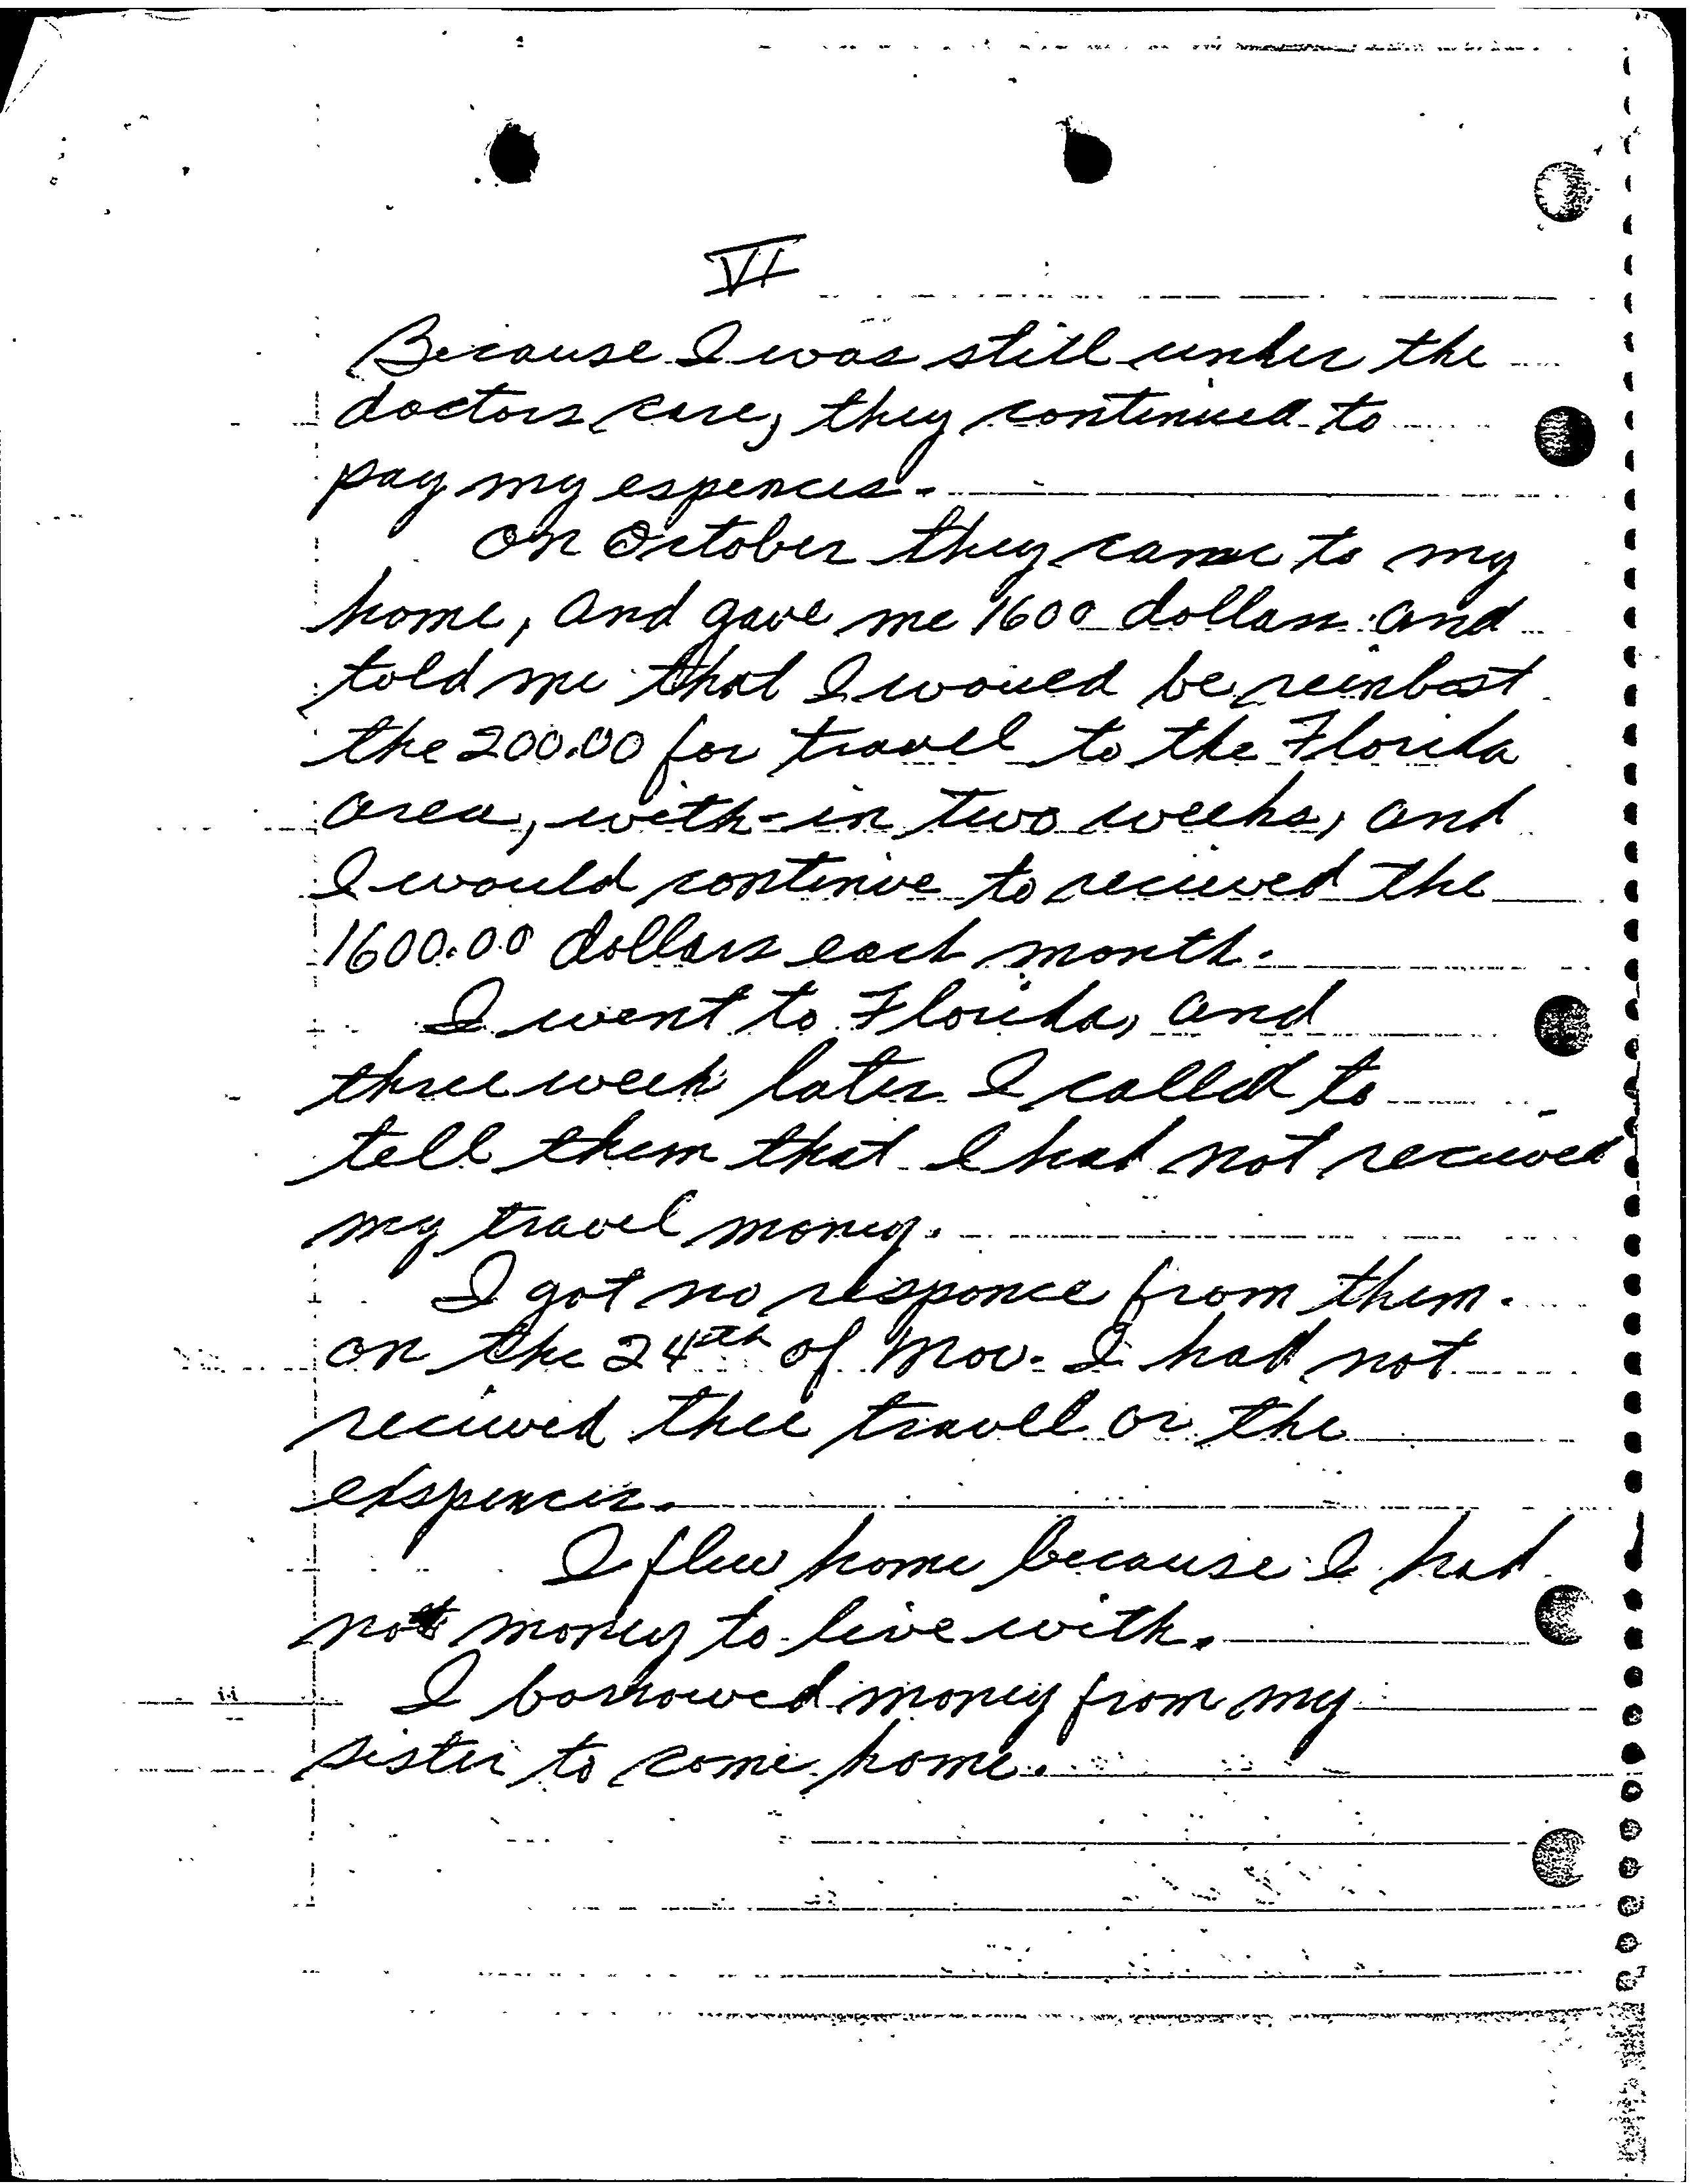 VI
Because I was still under the
doctors care, they continued to
pay my espences.
On October they came to my
home, and gave me 1600 dollars and
told me that I would be reinbost
the 200.00 for travel to the Florida
area, with-in two weeks, and
I would continue to recieved the
1600.00 dollars each month.
I went to Florida, and
three week later I called to
tell them that I had not recieved
my travel money.
I got no responce from them.
on the 24th of Nov. I had not
recieved thee travel or the
exspences.
I flew home because I had
no money to live with.
I borrowed money from my
sister to come home.